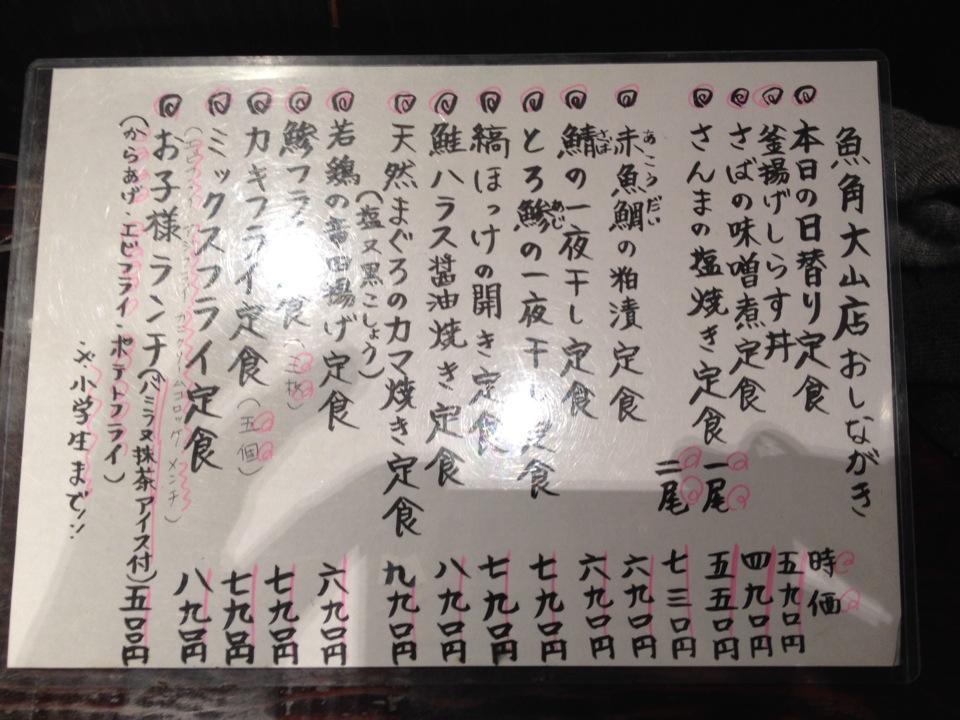 魚角大山店おしながき
本日の日替り定食 時価
釜揚げしらす丼 五九〇円
さばの味噌煮定食 四九〇円
さんまの塩焼き定食 一尾 五五〇円
二尾 七三〇円
赤魚鯛の粕漬定食 六九〇円
あこうだい
鯖の一夜干し定食 六九〇円
さば
とろ鯵の一夜干し定食 七九〇円
あじ
縞ほっけの開き定食 七九〇円
鮭ハラス醤油焼き定食 八九〇円
天然まぐろのカマ焼き定食 九九〇円
(塩又黒こしょう)
若鶏の竜田揚げ定食 六九〇円
鯵フライ定食(三枚) 七九〇円
カキフライ定食(五個) 七九〇円
ミックスフライ定食 八九〇円
カニクリームコロッケ メンチ)
お子様ランチ(バニラ又抹茶アイス付) 五〇〇円
(からあげ・エビフライ・ポテトフライ)
※小学生まで!!